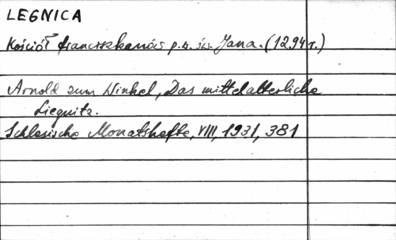 LEGNICA
Kościół franciszkanów p.w. św. Jana. (1294 r.)
Arnold zum Winkel, Das mittelalterliche
Liegnitz.
Schlesische Monatshefte, VIII, 1931, 381